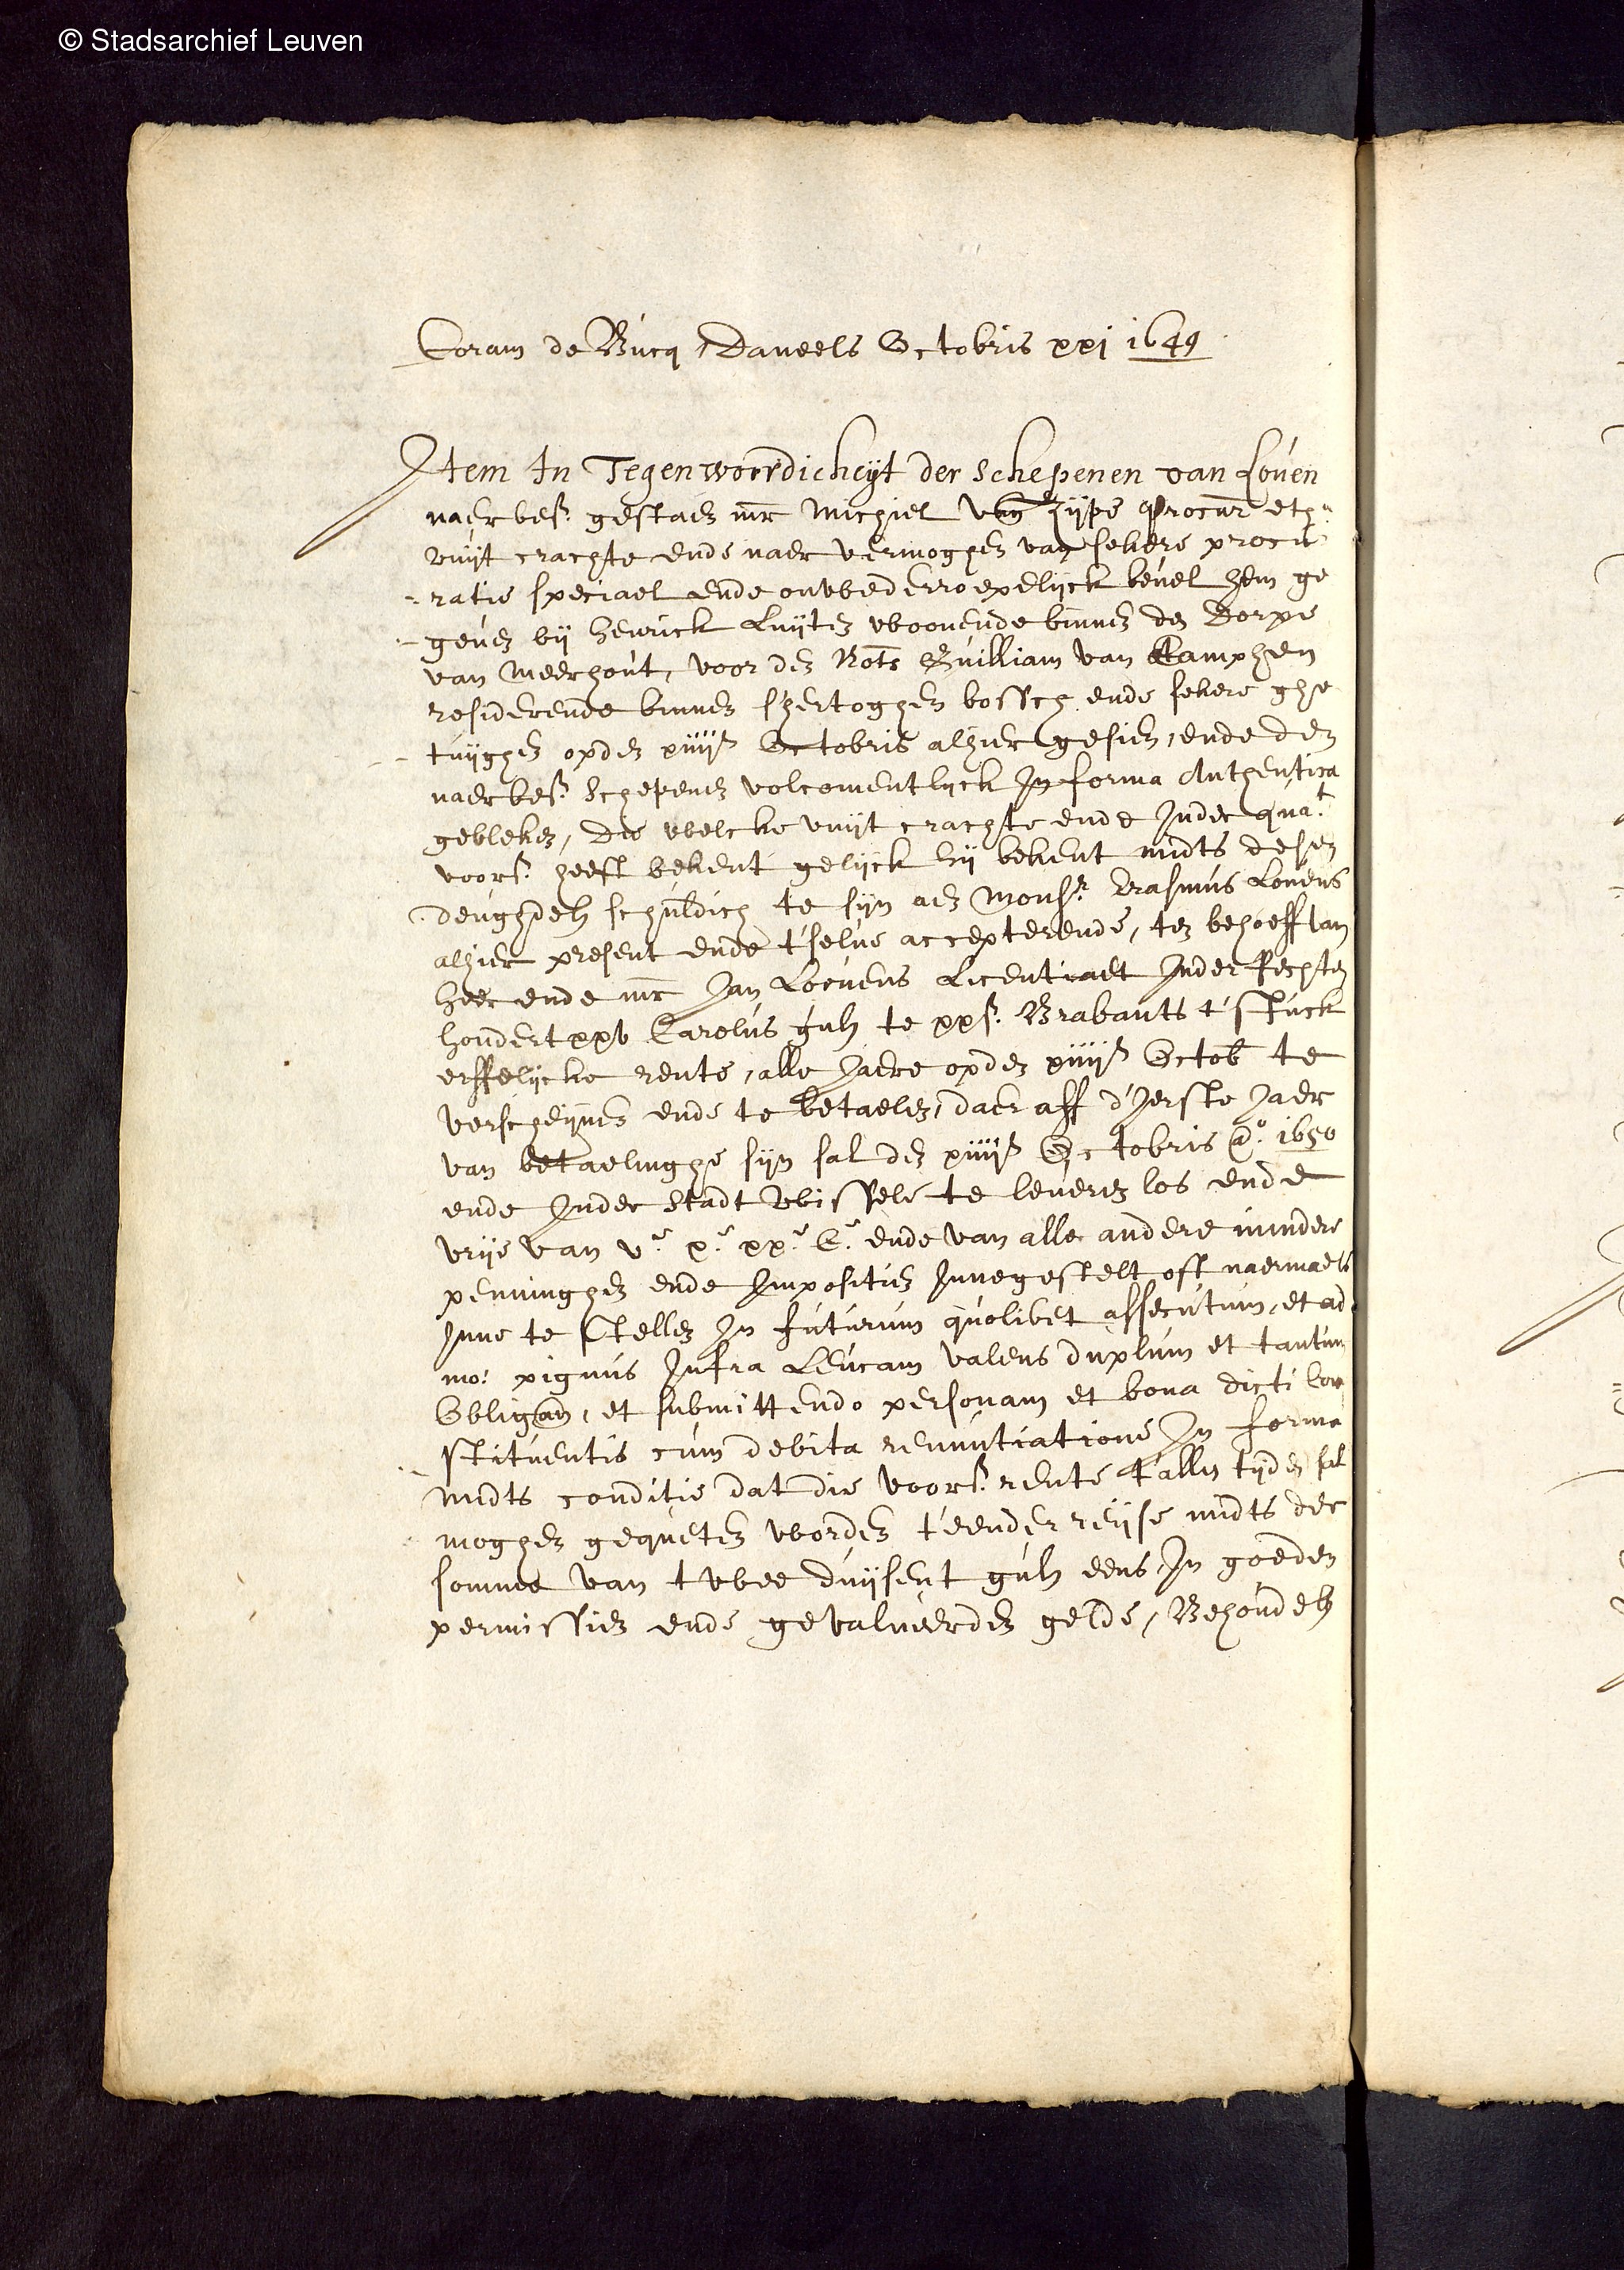 © Stadsarchief Leuven
Coram de Bucq, Daneels Octobris xxj 1649
Item In Tegenwoordicheyt der Schepenen van Loven
naerbes. gestaen mr Michiel van Zijpe procur etc.
vuyt crachte ende naer vermoghen van sekere procu
ratie speciael ende onwederroepelyck bevel hem ge
geven by Henrick Luyten woonende binnen den Dorpe
van Meerhout, voor den Nots Guilliam van Camphen
residerende binnen sHertoghen bossch ende sekere ghe
tuyghen opden xiiije Octobris alhier gesien, ende den
naerbes. Schepenen volcomentlyck In forma Authentica
gebleken, Die welcke vuyt crachte ende Inder quat.
voors. heeft bekent gelyck hy bekent midts desen
deughdelh schuldich te syn aen Monsr. Erasmus Lovens
alhier present ende t'selve accepterende, ten behoeff van
heer ende mr Jan Loevens Licentiaet Inder Rechten
hondert xxv Carolus guls te xx s. Brabants t'stuck
erffelycke rente, alle Jaere opden xiiije Octob te
verschynen ende te betaelen, daer aff d'Jerste Jaer
van betaelinghe syn sal den xiiije Octobris ao. 1650
ende Inder Stadt wissele te leveren los ende
vrye van ve. xe. xxe. Ce. ende van alle andere mindere
penninghen ende Impositien Innegestelt oft naermaels
Inne te stellen In futurum quolibet assecutum, et ad
mo. pignus Infra Leucam valens duplum et tantum
Obligan, et submittendo personam et bona dicti Con
stituentis cum debita renuntiatione In forma
Midts conditie dat die voors. rente t'allen tyden sal
moghen gequeten worden t'eender reyse midts der
somme van twee duysent guls eens, In goeden
permissien ende gevalueerden gelde, Behoudelh